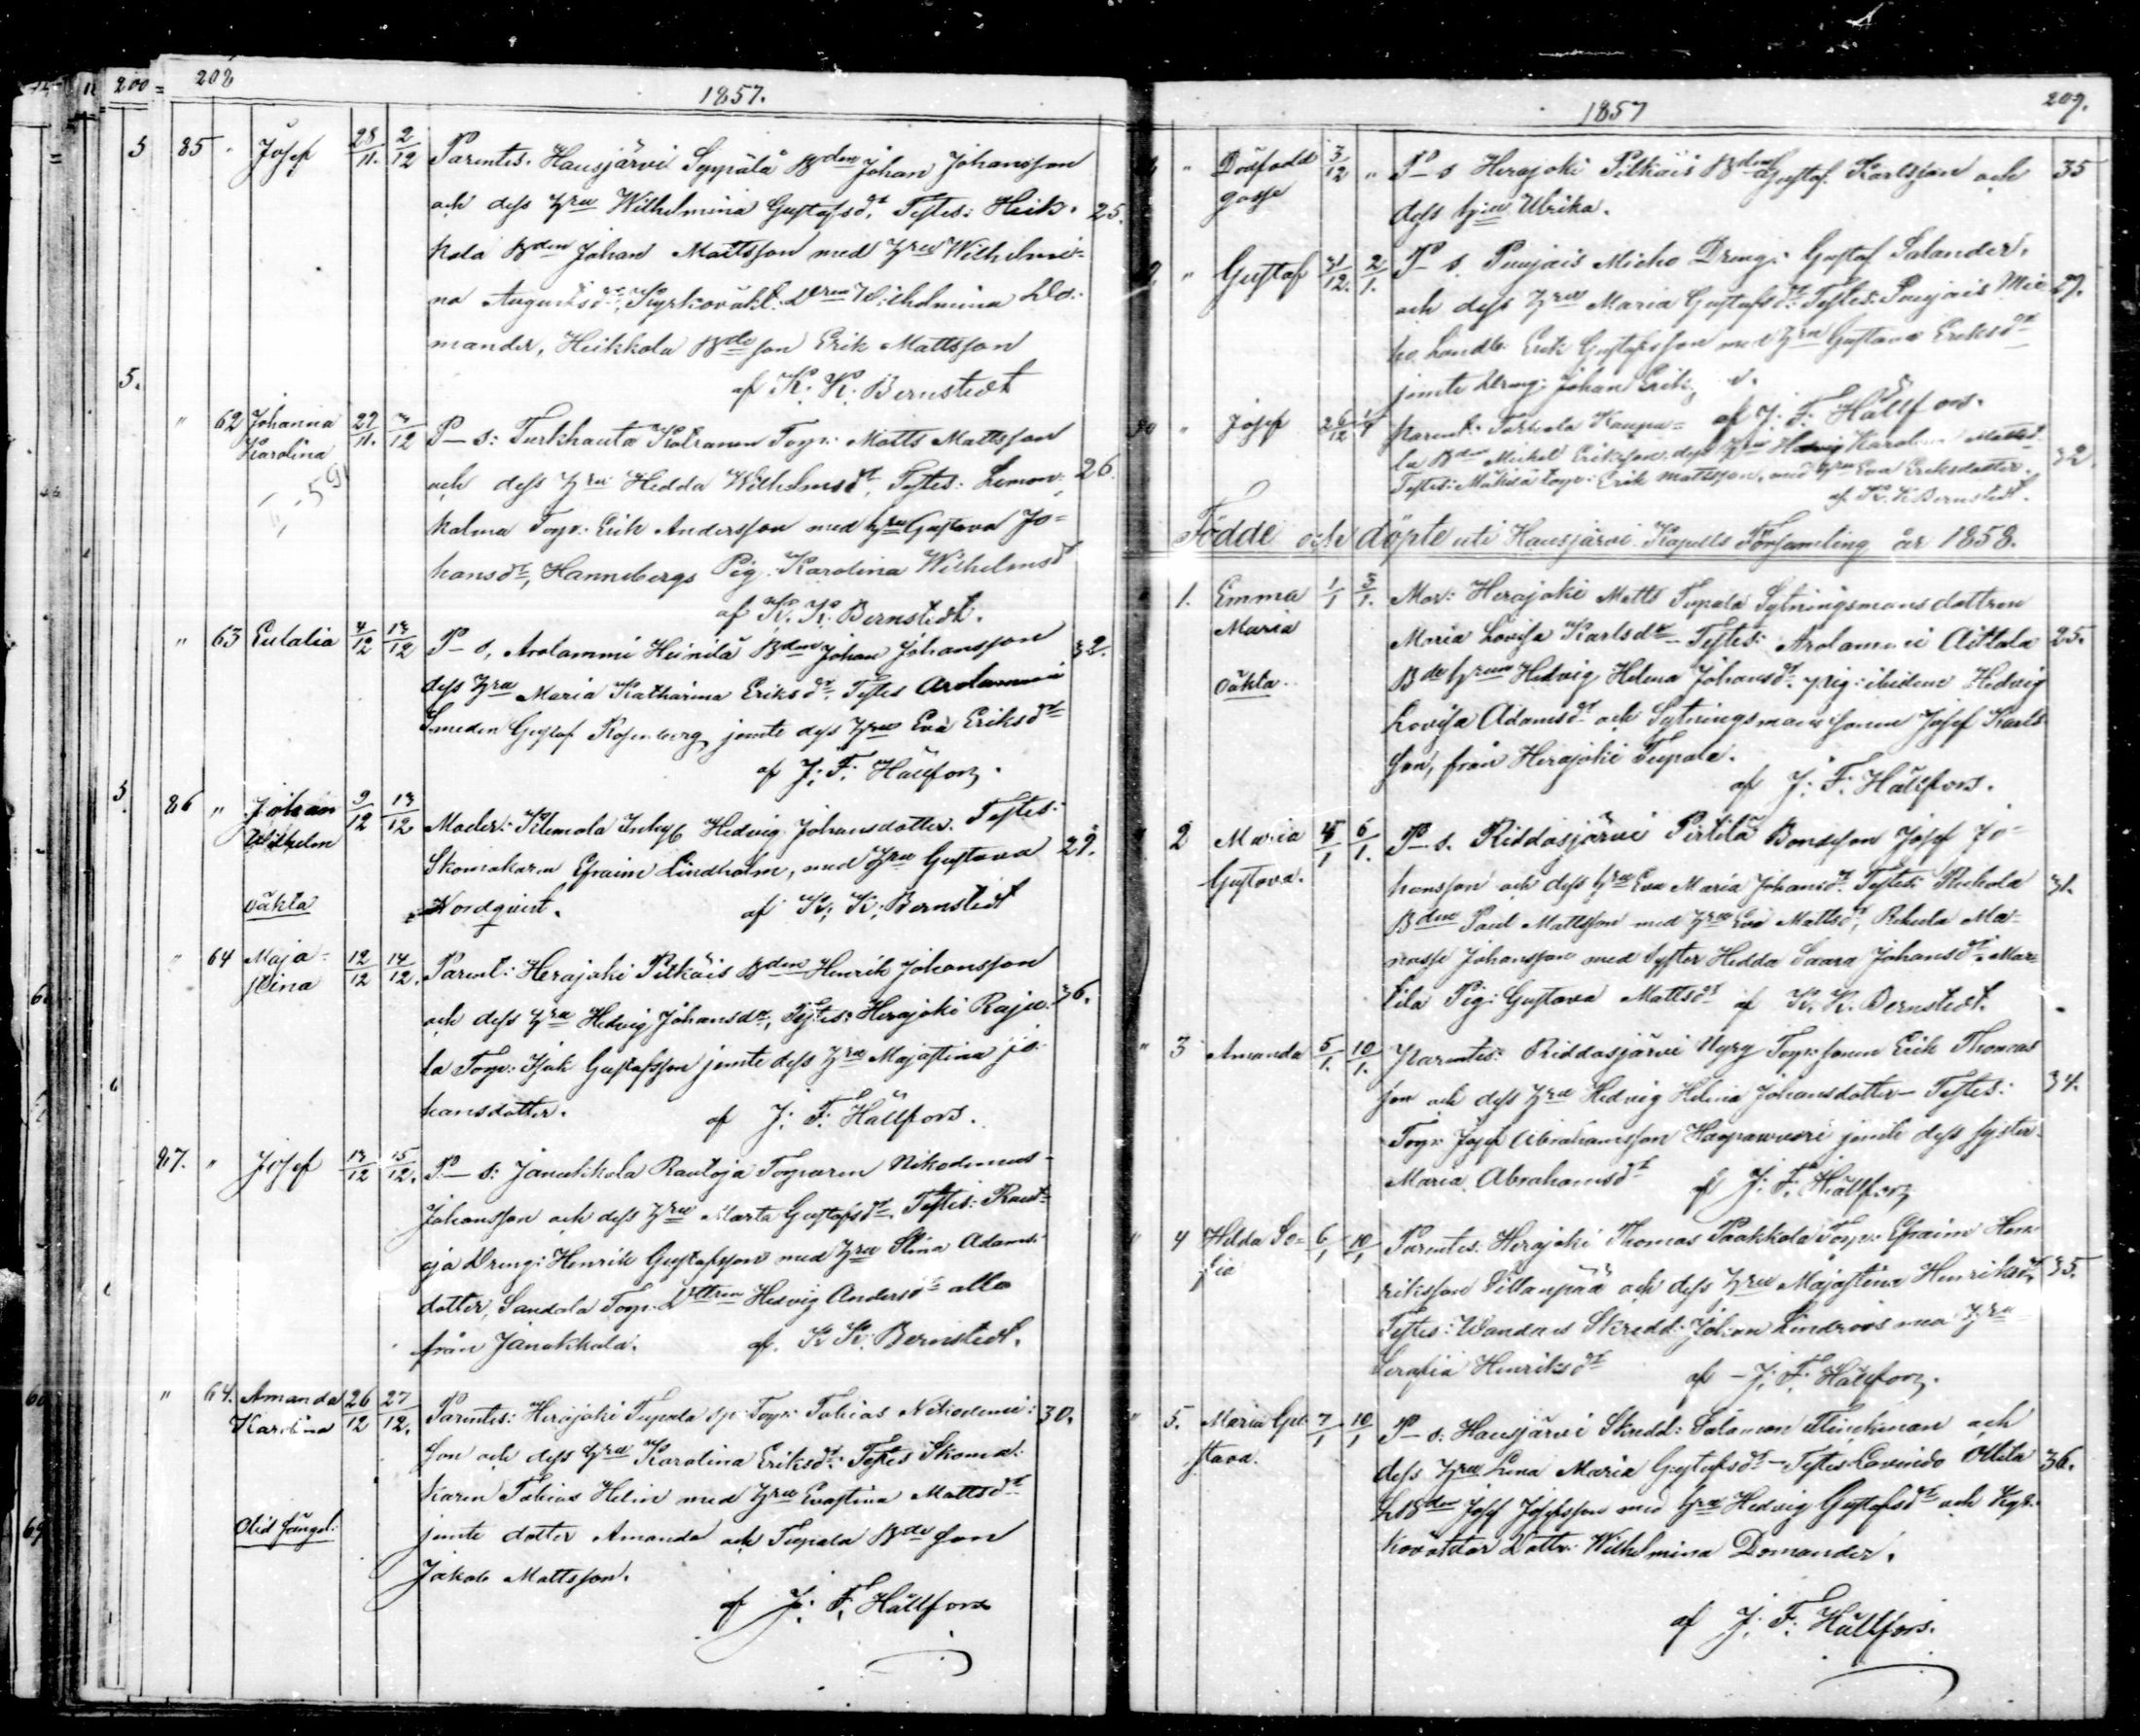 208
1857.
85 Josef 28/11. 2/12 Parentes. Hausjärvi Seppälä Bden Johan Johansson
och dess hru Wilhelmina Gustafsdr. Testes: Heik- 25.
kola Bden Johan Mattsson med hru Wilhelmi-
na Augustsdr, Wilhelmina Do-
mander, Heikkola Bde son Erik Mattsson
af K. K. Bernstedt
" 62 Johanna 27/11. 3/12 P–s: Turkhauta Torp: Matts Mattsson
Karolina
och dess hru Hedda Wilhelmsdr, Testes: Lemon- 26.
kalma Torp. Erik Andersson med hru Gustava Jo=
hansdr, Hannebergs Pig. Karolina Wilhelmsdr
af K. K. Bernstedt.
" 63 Eulalia 4/12 13/12 P–s, Arolammi Heinilä Bden Johan Johansson 32.
dess hru Maria Katharina Eriksdr. Testes Arolammi
Smeden Gustaf Rosenberg jemte dess hru Eva Eriksdr
af J. F. Hällfors.
86 " Johan 9/12 13/12 Moder: Inhys Hedvig Johansdotter. Testes:
Wilhelm
Skomakaren Efraim Lindholm, med hru Gustava 29.
oäkta
Nordqvist. af K. K. Bernstedt
" 64 Maja- 12/12 14/12. Parent: Herajoki Pitkäis Bden Henrik Johansson
stina
och dess hru Hedvig Johansdr, Testes: Herajoki Raja- 36.
la Torp: Isak Gustafsson jemte dess hru Majastina Jo-
hansdotter. af J. F. Hällfors.
87. " Josef 13/12 15/12. P–s: Janakkala Rautoja Torparen Nikodemus
Johansson och dess hru Marta Gustafsdr. Testes: Raut-
oja Dreng: Henrik Gustafsson med hru Stina Adams-
dotter, Sandala Torp. Dttren Hedvig Andersdr alla
från Janakkala. af. K. K. Bernstedt.
" 64. Amanda 26/12 27/12. Parentes: Herajoki Tupala Torp: Tobias Nikodemi- 30.
Karolina
son och dess hru Karolina Eriksdr. Testes Skoma-
karen Tobias Helin med hru Evastina Mattsdr
jemte dotter Amanda och Tupala Bde son
Jakob Mattsson.
af J. F. Hällfors
1857
209.
" Dödfödd 3/12 " P–s Herajoki Pitkäis Bden Gustaf Karlsson och 35
gosse
dess hru Ulrika.
" Gustaf 31/12. 2/1. P–s. Punjais Mieho Dreng: Gustaf Salander,
och dess hru Maria Gustafsdr. Testes: Punjais Mie- 29.
ho Landb. Erik Gustafsson med hru Gustava Eriksdr
jemte dreng: Johan
af J. F. Hällfors.
" Josef 26/12 Parent:
la Bden Michel Eriksson, dess hru Hedvig Karolina Mattsd.
Testes: torp: Erik Mattsson, med hru Eva Eriksdotter. 32.
af K. K. Bernstedt.
Födde och döpte uti Hausjärvi Kapells Församling år 1858.
1. Emma 1/1 3/1. Mor: Herajoki Matts Tupala Sytningsmans dottren
Maria
Maria Lovisa Karlsdr – Testes: Arolammi Aittala 25.
oäkta
Bde hrun Hedvig Helena Johansdr. pig: ibidem Hedvig
Lovisa Adamsdr och Sytningsmans sonen Josef Karls-
son, från Herajoki Tupala.
af J. F. Hällfors.
2 Maria 6/1. P–s. Riddasjärvi Pirtilä Bondeson Josef Jo=
Gustava.
hansson och dess hru Eva Maria Johansdr. Testes: 31.
Bden Paul Mattsson med hru Eva Mattsdr, Ma-
nasse Johansson med Syster Hedda Saara Johansdr. Mar-
tila Pig: Gustava Mattsdr af K. K. Bernstedt.
" 3 Amanda 5/1. 10/1. Parentes: Riddasjärvi Nyry Torp: sonen Erik Thomas
son och dess hru Hedvig Helena Johansdotter – Testes: 34.
Torp: Josef Abrahamsson jemte dess syster
Maria Abrahamsdr af J. F. Hällfors
" 4 Hilda So- 6/1 10/1 Parentes: Herajoki Thomas Paakkola Torp: Efraim Hen-
fia
riksson Sillanpää och dess hru Majastina Henriksdr. 35.
Testes: Skredd: Johan Lindroos med hru
Serafia Henriksdr af J. F. Hällfors.
" 5. Maria Gu- 7/1 10/1 P–s: Hausjärvi Skredd: Salomon Flinckman och
stava.
dess hru Lena Maria Gustafsdr – Testes Ollila 36.
Bden Josef Josefsson med hru Hedvig Gustafsdr och
Dottr: Wilhelmina Domander.
af J. F. Hällfors.